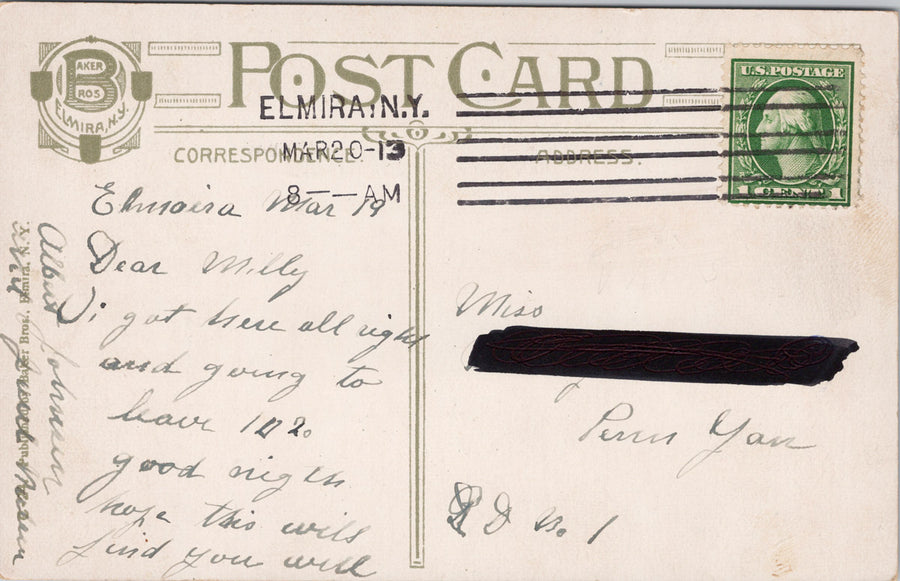 POST CARD
BAKER
BROS
ELMIRA, N.Y.
ELMIRA, N.Y.
MAR 20-13
8—— AM
U.S. POSTAGE
1 CENT 1
CORRESPONDENCE
ADDRESS.
Elmaira Mar 19
Dear Milly
i got here all right
and going to
leave
good nigh
hope this will
find you well
Albert Johnson
Published by Baker Bros., Elmira, N. Y.
Miss
Penn Yan
R D No 1